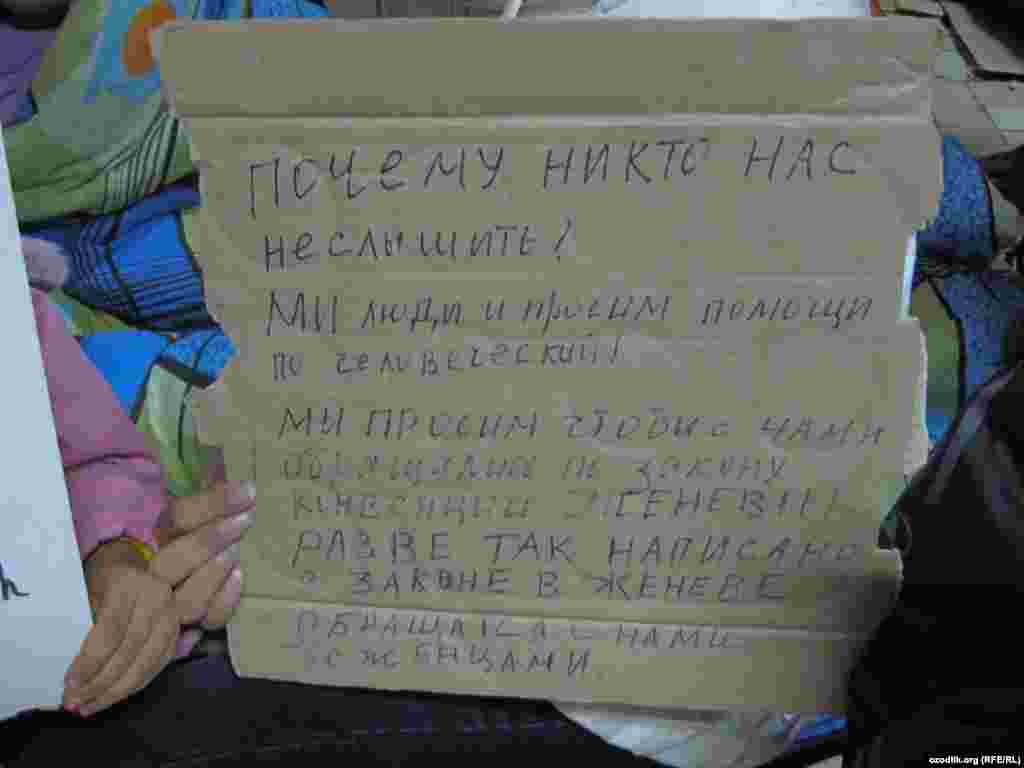 ПОЧЕМУ НИКТО НАС
НЕ СЛЫШИТЬ?
МИ ЛЮДИ И ПРОСИМ ПОМОЩИ
ПО ЧЕЛОВЕЧЕСКИЙ!
МЫ ПРОСИМ ЧТОБЫ С НАМИ
ПО ЗАКОНУ
ЖЕНЕВЫ!
РАЗВЕ ТАК НАПИСАНО
ЗАКОНЕ В ЖЕНЕВЕ
С НАМИ
ozodlik.org (RFE/RL)